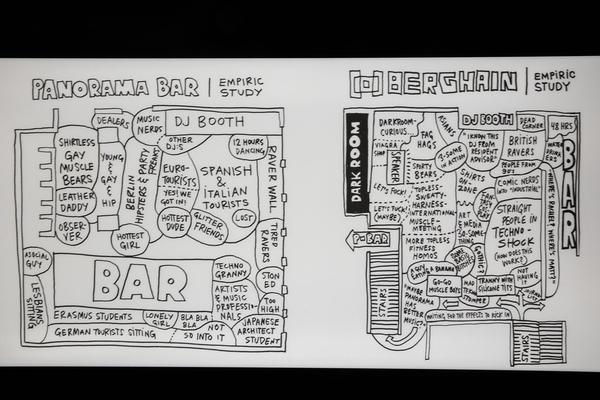 PANORAMA BAR | EMPIRIC
STUDY
DEALERS
MUSIC
NERDS
DJ BOOTH
OTHER
DJ'S
12 HOURS
DANCING
SHIRTLESS
GAY
MUSCLE
BEARS
YOUNG
&
GAY
&
HIP
BERLIN
HIPSTERS &
PARTY
FREAKS
EURO-
TOURISTS
YES! WE
GOT IN!
SPANISH
&
ITALIAN
TOURISTS
RAVER WALL
LEATHER
DADDY
OBSER-
VER
HOTTEST
GIRL
HOTTEST
DUDE
GLITTER
FRIENDS
LOST
TIRED
RAVERS
ASOCIAL
GUY
BAR
TECHNO
GRANNY
STON
ED
LESBIANS
SITTING
ARTISTS
& MUSIC
PROFESSIO-
NALS
TOO
HIGH
ERASMUS STUDENTS
LONELY
GIRL
BLA BLA
BLA
GERMAN TOURISTS SITTING
NOT
SO INTO IT
JAPANESE
ARCHITECT
STUDENT
BERGHAIN | EMPIRIC
STUDY
DARK ROOM
DARKROOM-
CURIOUS...
FAG
HAGS
ASIANS
DJ BOOTH
DEAD
CORNER
48 HRS
VIAGRA
SHOP
SPENCER
3-SOME
IN ACTION
"I KNOW THIS
DJ FROM
RESIDENT
ADVISOR"
BRITISH
RAVERS
BAR
SPORTY
BEARS
PEOPLE FROM
90'S
LET'S FUCK!
TOPLESS-
SWEATY-
HARNESS-
INTERNATIONAL
MUSCLE-
MEETING
SHIRTS
ZONE
COMIC NERDS
"INDUSTRIAL"
LET'S FUCK!
(MAYBE)
ART
& MEDIA
SO-SOME-
THING
STRAIGHT
PEOPLE IN
TECHNO-
SHOCK
(HOW DOES THIS
WORK?)
P-BAR
MORE TOPLESS
FITNESS
HOMOS
GOTHIC?
NOT
HAVING
IT
STAIRS
A GUY
EATING A BANANA
GO-GO
MUSCLE BOYS
MAD
STOMPER
TRANNY WITH
SILICONE TITS
"MAYBE
PANORAMA
HAS
BETTER
MUSIC?"
WAITING FOR THE EFFECTS TO KICK IN
STAIRS